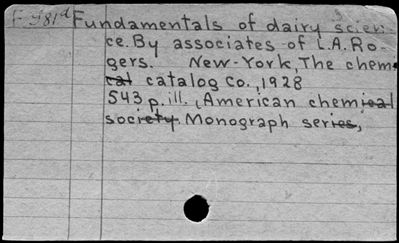 F-981d Fundamentals of dairy scien-
ce. By associates of L.A.Ro-
gers. New-York, The chem-
cal catalog Co., 1928
543 p. ill. (American chemical
society. Monograph series,